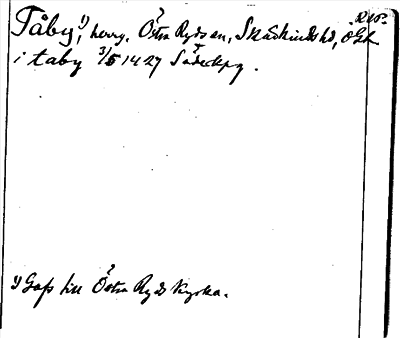 Rep.
Tåby,¹⁾ herrg. Östra Ryds sn, Skärkinds hd, Ögl.
i taby 3/5 1427 Söderkpg.
¹⁾ Gafs till Östra Ryds kyrka.